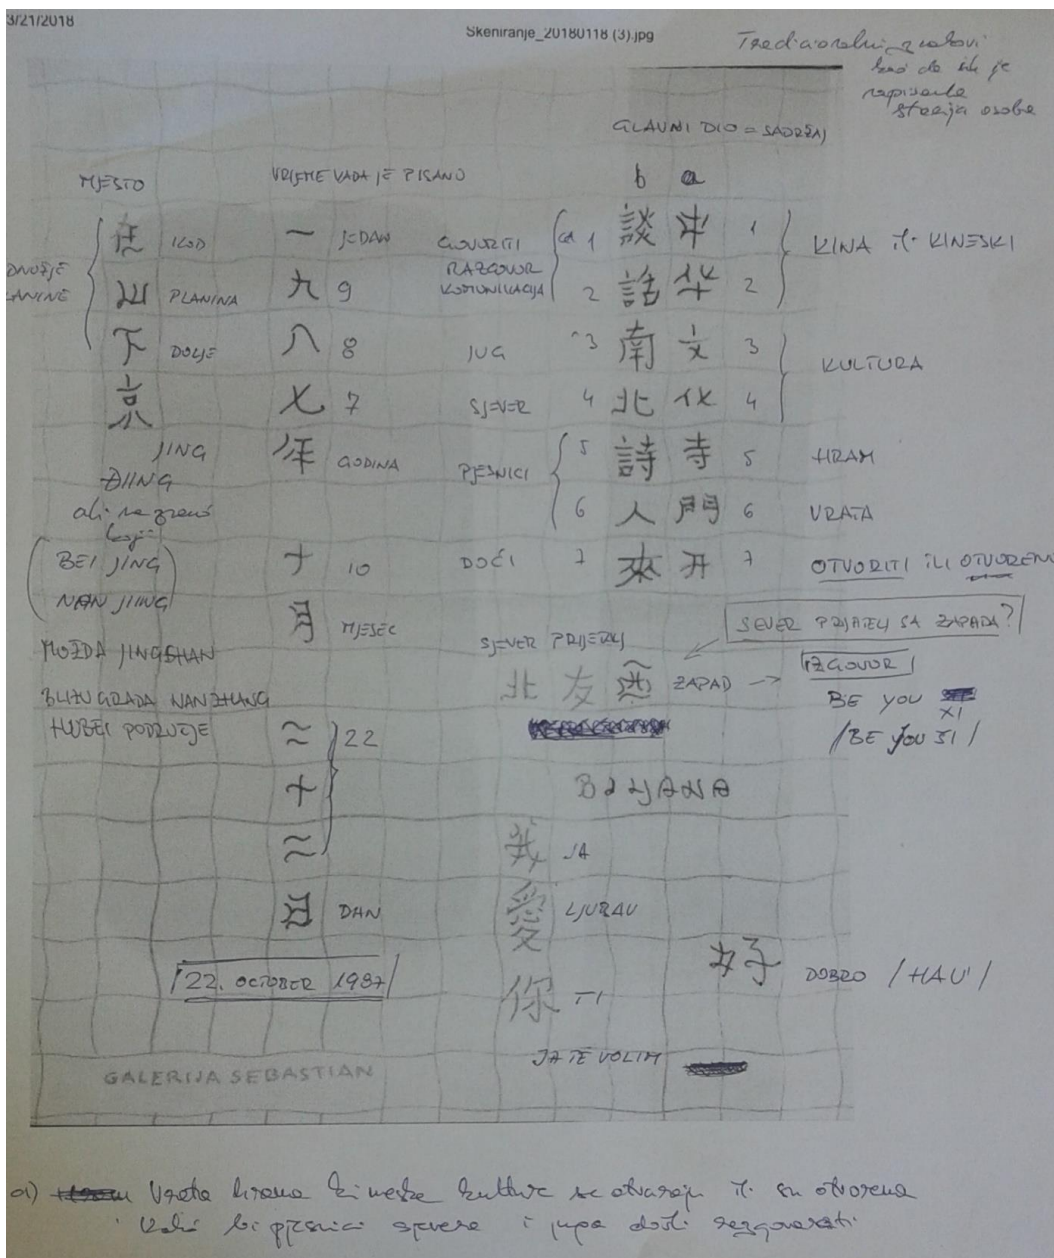 3/21/2018
Skeniranje_20180118 (3).jpg
kao da ih je
napisala
starija osoba
GLAVNI DIO = SADRŽAJ
MJESTO
VRIJEME KADA JE PISANO
b a
在 KOD
山 PLANINA
下 DOLJE
京
JING
ĐIING
ali ne znam
koji
BEI JING
NAN JIING
MOŽDA JINGSHAN
BLIZU GRADA NANZHANG
HUBEI PODRUČJE
一 JEDAN
九 9
八 8
七 7
年 GODINA
十 10
月 MJESEC
二
十
二
22
日 DAN
/22. OCTOBER 1987/
GOVORITI
RAZGOVOR
KOMUNIKACIJA
1 談 中 1
2 話 华 2
KINA ILI KINESKI
JUG 3 南 文 3
SJEVER 4 北 化 4
KULTURA
PJESNICI
5 詩 寺 5 HRAM
6 人 門 6 VRATA
DOĆI 7 來 开 7 OTVORITI ILI OTVOREN
SJEVER PRIJATELJ
SEVER PRIJATELJ SA ZAPADA?
北 友 西 ZAPAD
IZGOVOR
BE YOU
XI
/BE YOU SI/
BILJANA
我 JA
愛 LJUBAV
你 TI
JA TE VOLIM
好 DOBRO /HAU/
GALERIJA SEBASTIAN
a) Vrata hrama kineske kulture se otvaraju ili su otvorena
kako bi pjesnici sjevera i juga došli razgovarati